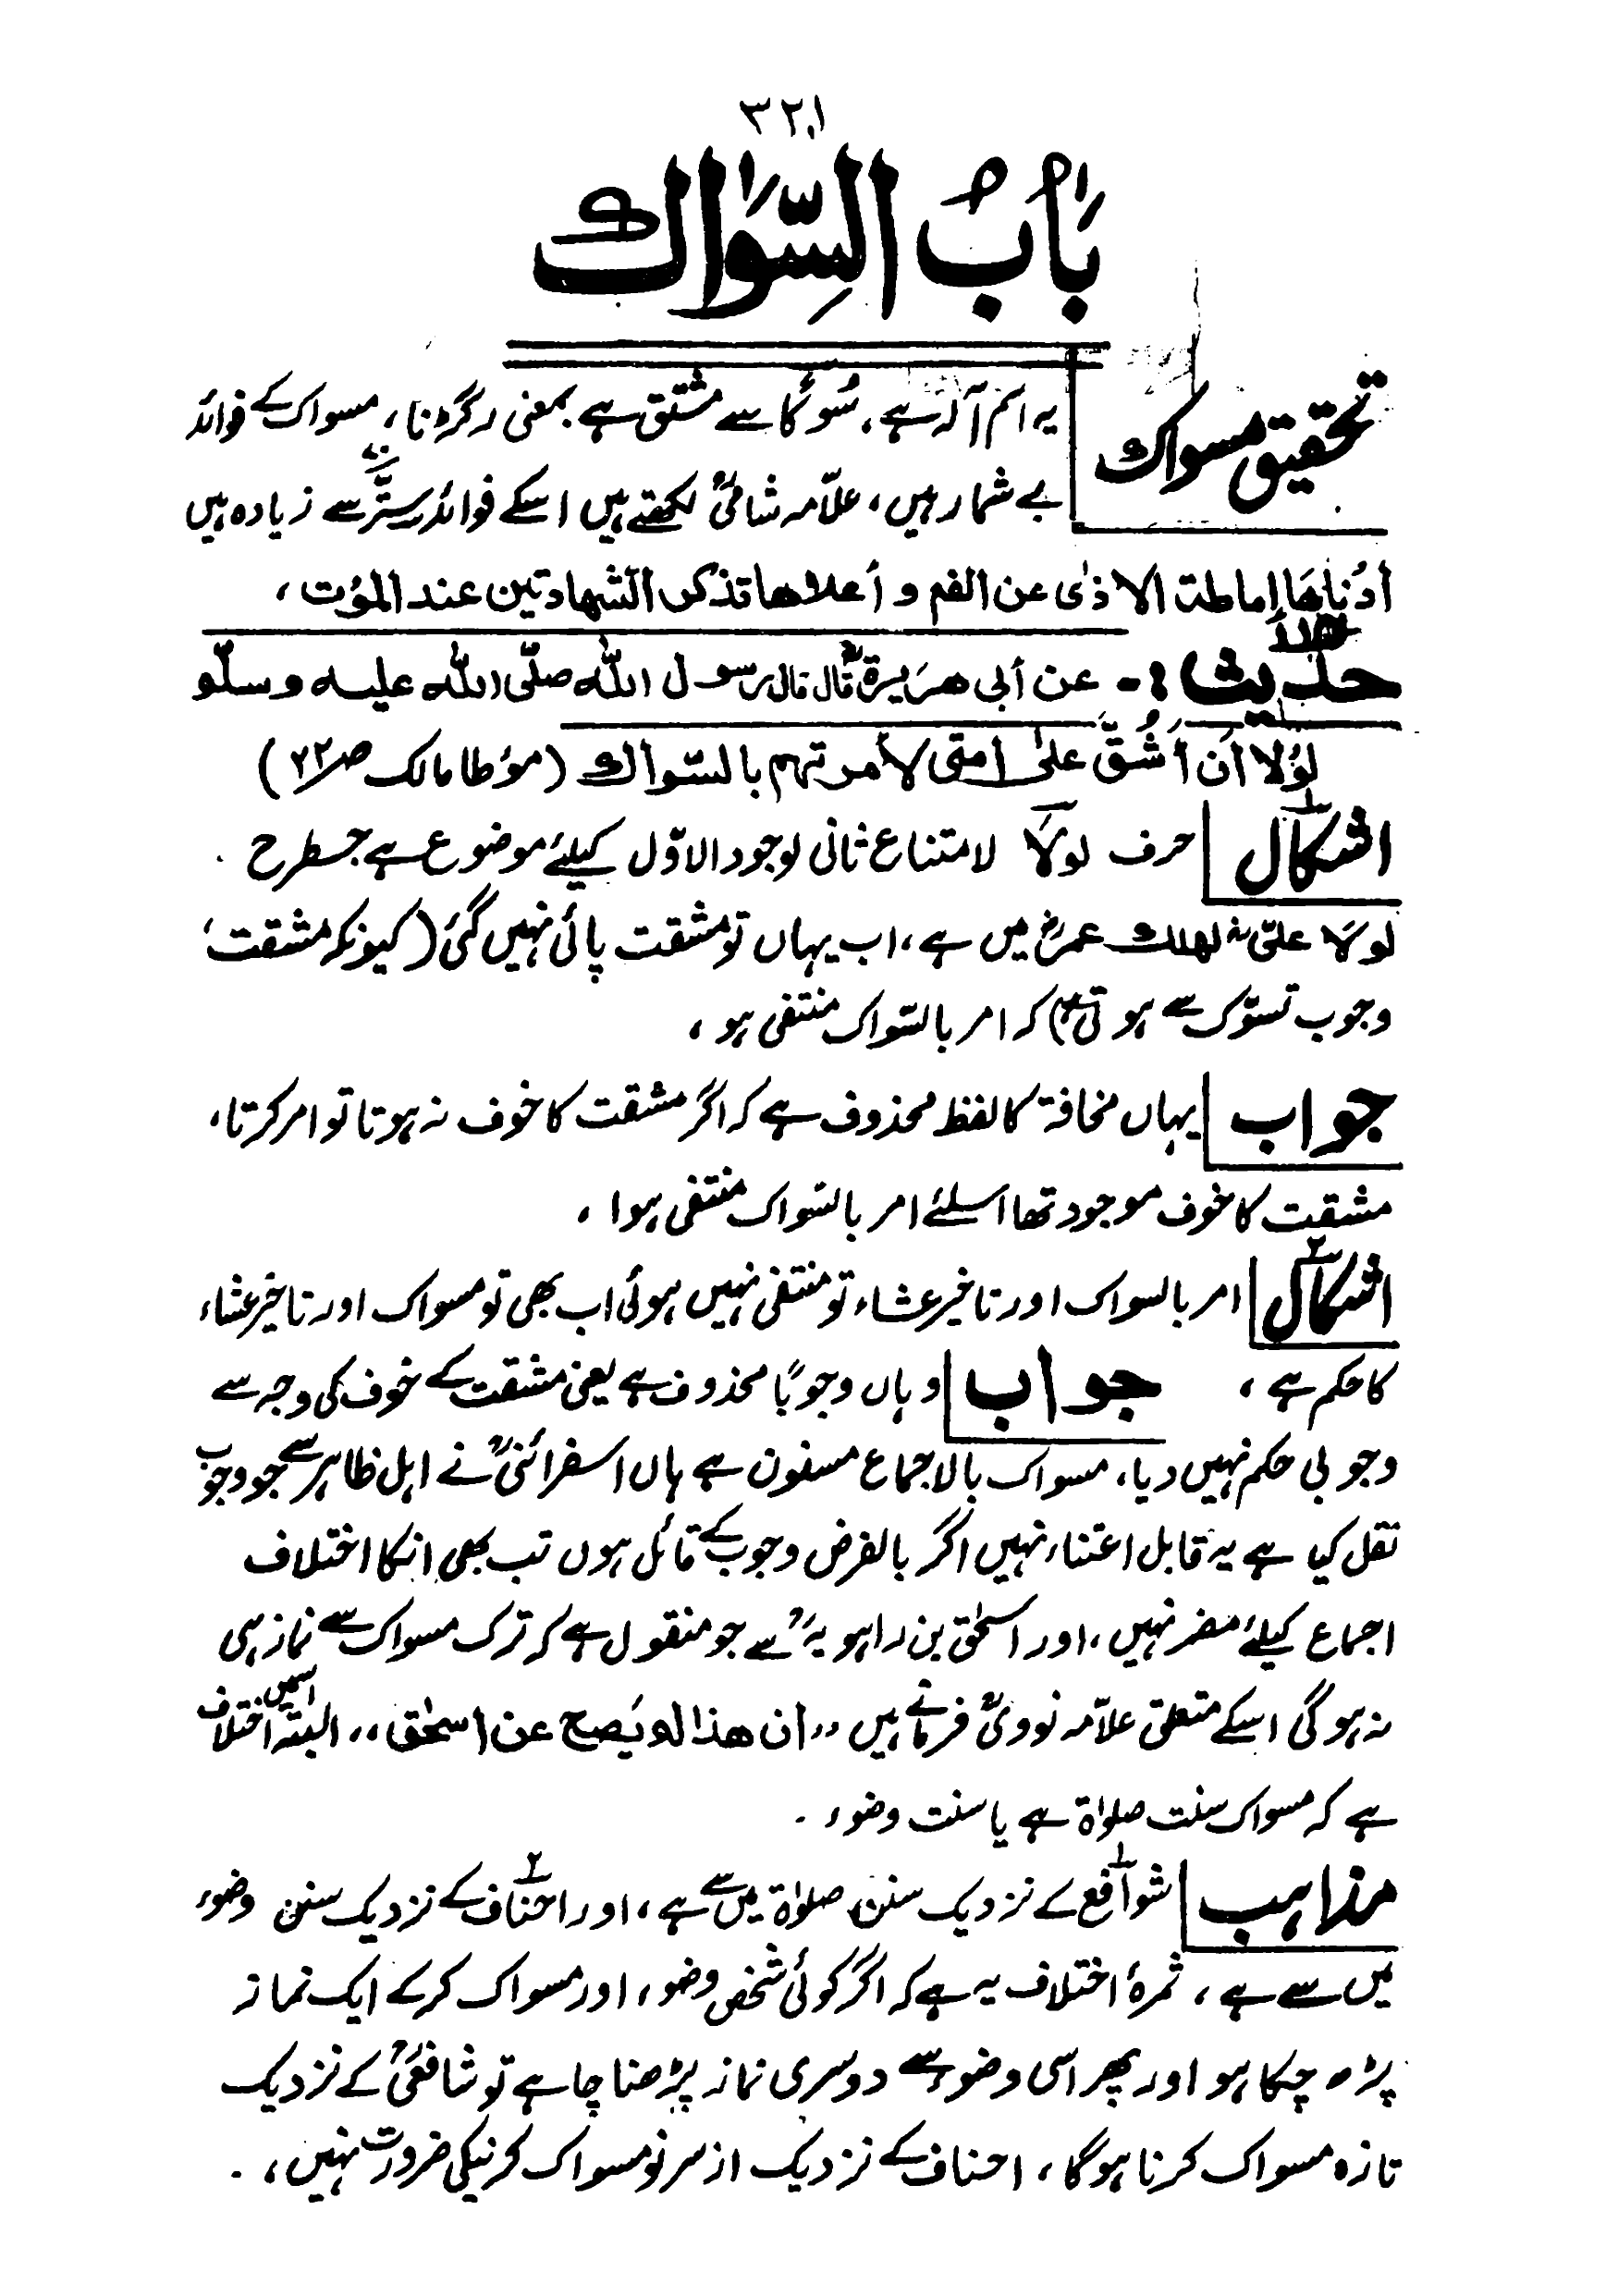 ۳۲۱
بَابُ السِّوَاك
تحقیق مسواک یہ اسم آلہ ہے، سُوکًا سے مشتق ہے بمعنی رگڑنا، مسواک کے فوائد
بے شمار ہیں، علّامہ شامیؒ لکھتے ہیں اسکے فوائد ستّر سے زیادہ ہیں
أدْناهَا إماطة الاذٰى عن الفم و أعلاها تذكر الشهادتين عند الموْت ،
حدیث :- عن أبي هرَيرةؓ قال قال رسول الله صلّى الله عليه وسلّم
لوْلا أن أشُقَّ علىٰ أمتى لأمرتهم بالسّواك (مؤطا مالک صـ۲۲)
اشکال۱ حرف لولَا لامتناع ثانی لوجود الاوّل کیلئے موضوع ہے جسطرح
لولَا علیؓ لهلك عمرؓ میں ہے، اب یہاں تو مشقت پائی نہیں گئی (کیونکہ مشقت،
وجوب تسوّک سے ہوتی ہے) کہ امر بالسّواک منتفی ہو،
جواب یہاں مخافۃ کا لفظ محذوف ہے کہ اگر مشقت کا خوف نہ ہوتا تو امر کرتا،
مشقت کا خوف موجود تھا اسلئے امر بالسّواک منتفی ہوا،
اشکال۲ امر بالسواک اور تاخیر عشاء تو منتفی نہیں ہوئی اب بھی تو مسواک اور تاخیر عشاء
کا حکم ہے، جواب وہاں وجوبًا محذوف ہے یعنی مشقت کے خوف کی وجہ سے
وجوبی حکم نہیں دیا، مسواک بالاجماع مسنون ہے ہاں اسفرائنیؒ نے اہل ظاہر سے جو وجوب
نقل کیا ہے یہ قابل اعتناء نہیں اگر بالفرض وجوب کے قائل ہوں تب بھی انکا اختلاف
اجماع کیلئے مضر نہیں، اور اسحٰق بن راہویہؒ سے جو منقول ہے کہ ترک مسواک سے نماز ہی
نہ ہوگی اسکے متعلق علّامہ نوویؒ فرماتے ہیں ,,ان هذا لم يَصح عن اسحٰق،، البتہ اسمیں اختلاف
ہے کہ مسواک سنت صلوٰۃ ہے یا سنت وضوء ۔
مذاہب شوافع۱ کے نزدیک سنن صلوٰۃ میں سے ہے، اور احناف۲ کے نزدیک سنن وضوء
میں سے ہے، ثمرۂ اختلاف یہ ہے کہ اگر کوئی شخص وضوء اور مسواک کرکے ایک نماز
پڑھ چکا ہو اور پھر اسی وضوء سے دوسری نماز پڑھنا چاہے تو شافعیؒ کے نزدیک
تازہ مسواک کرنا ہوگا، احناف کے نزدیک از سر نو مسواک کرنیکی ضرورت نہیں،